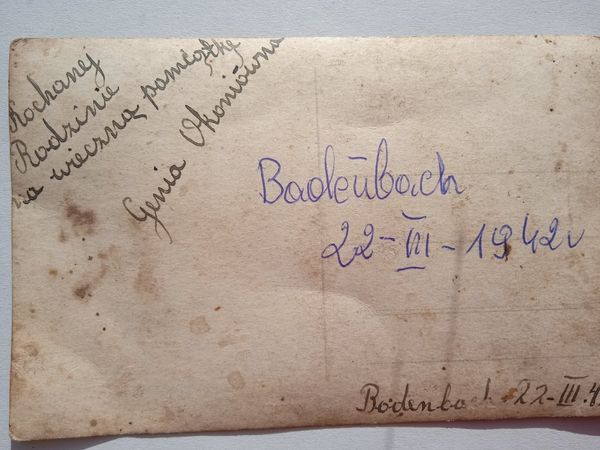 Kochanej
Rodzinie
na wieczną pamiątkę
Genia Okoniówna
Badeńbach
22-III-1942r
Bodenbach 22-III.4